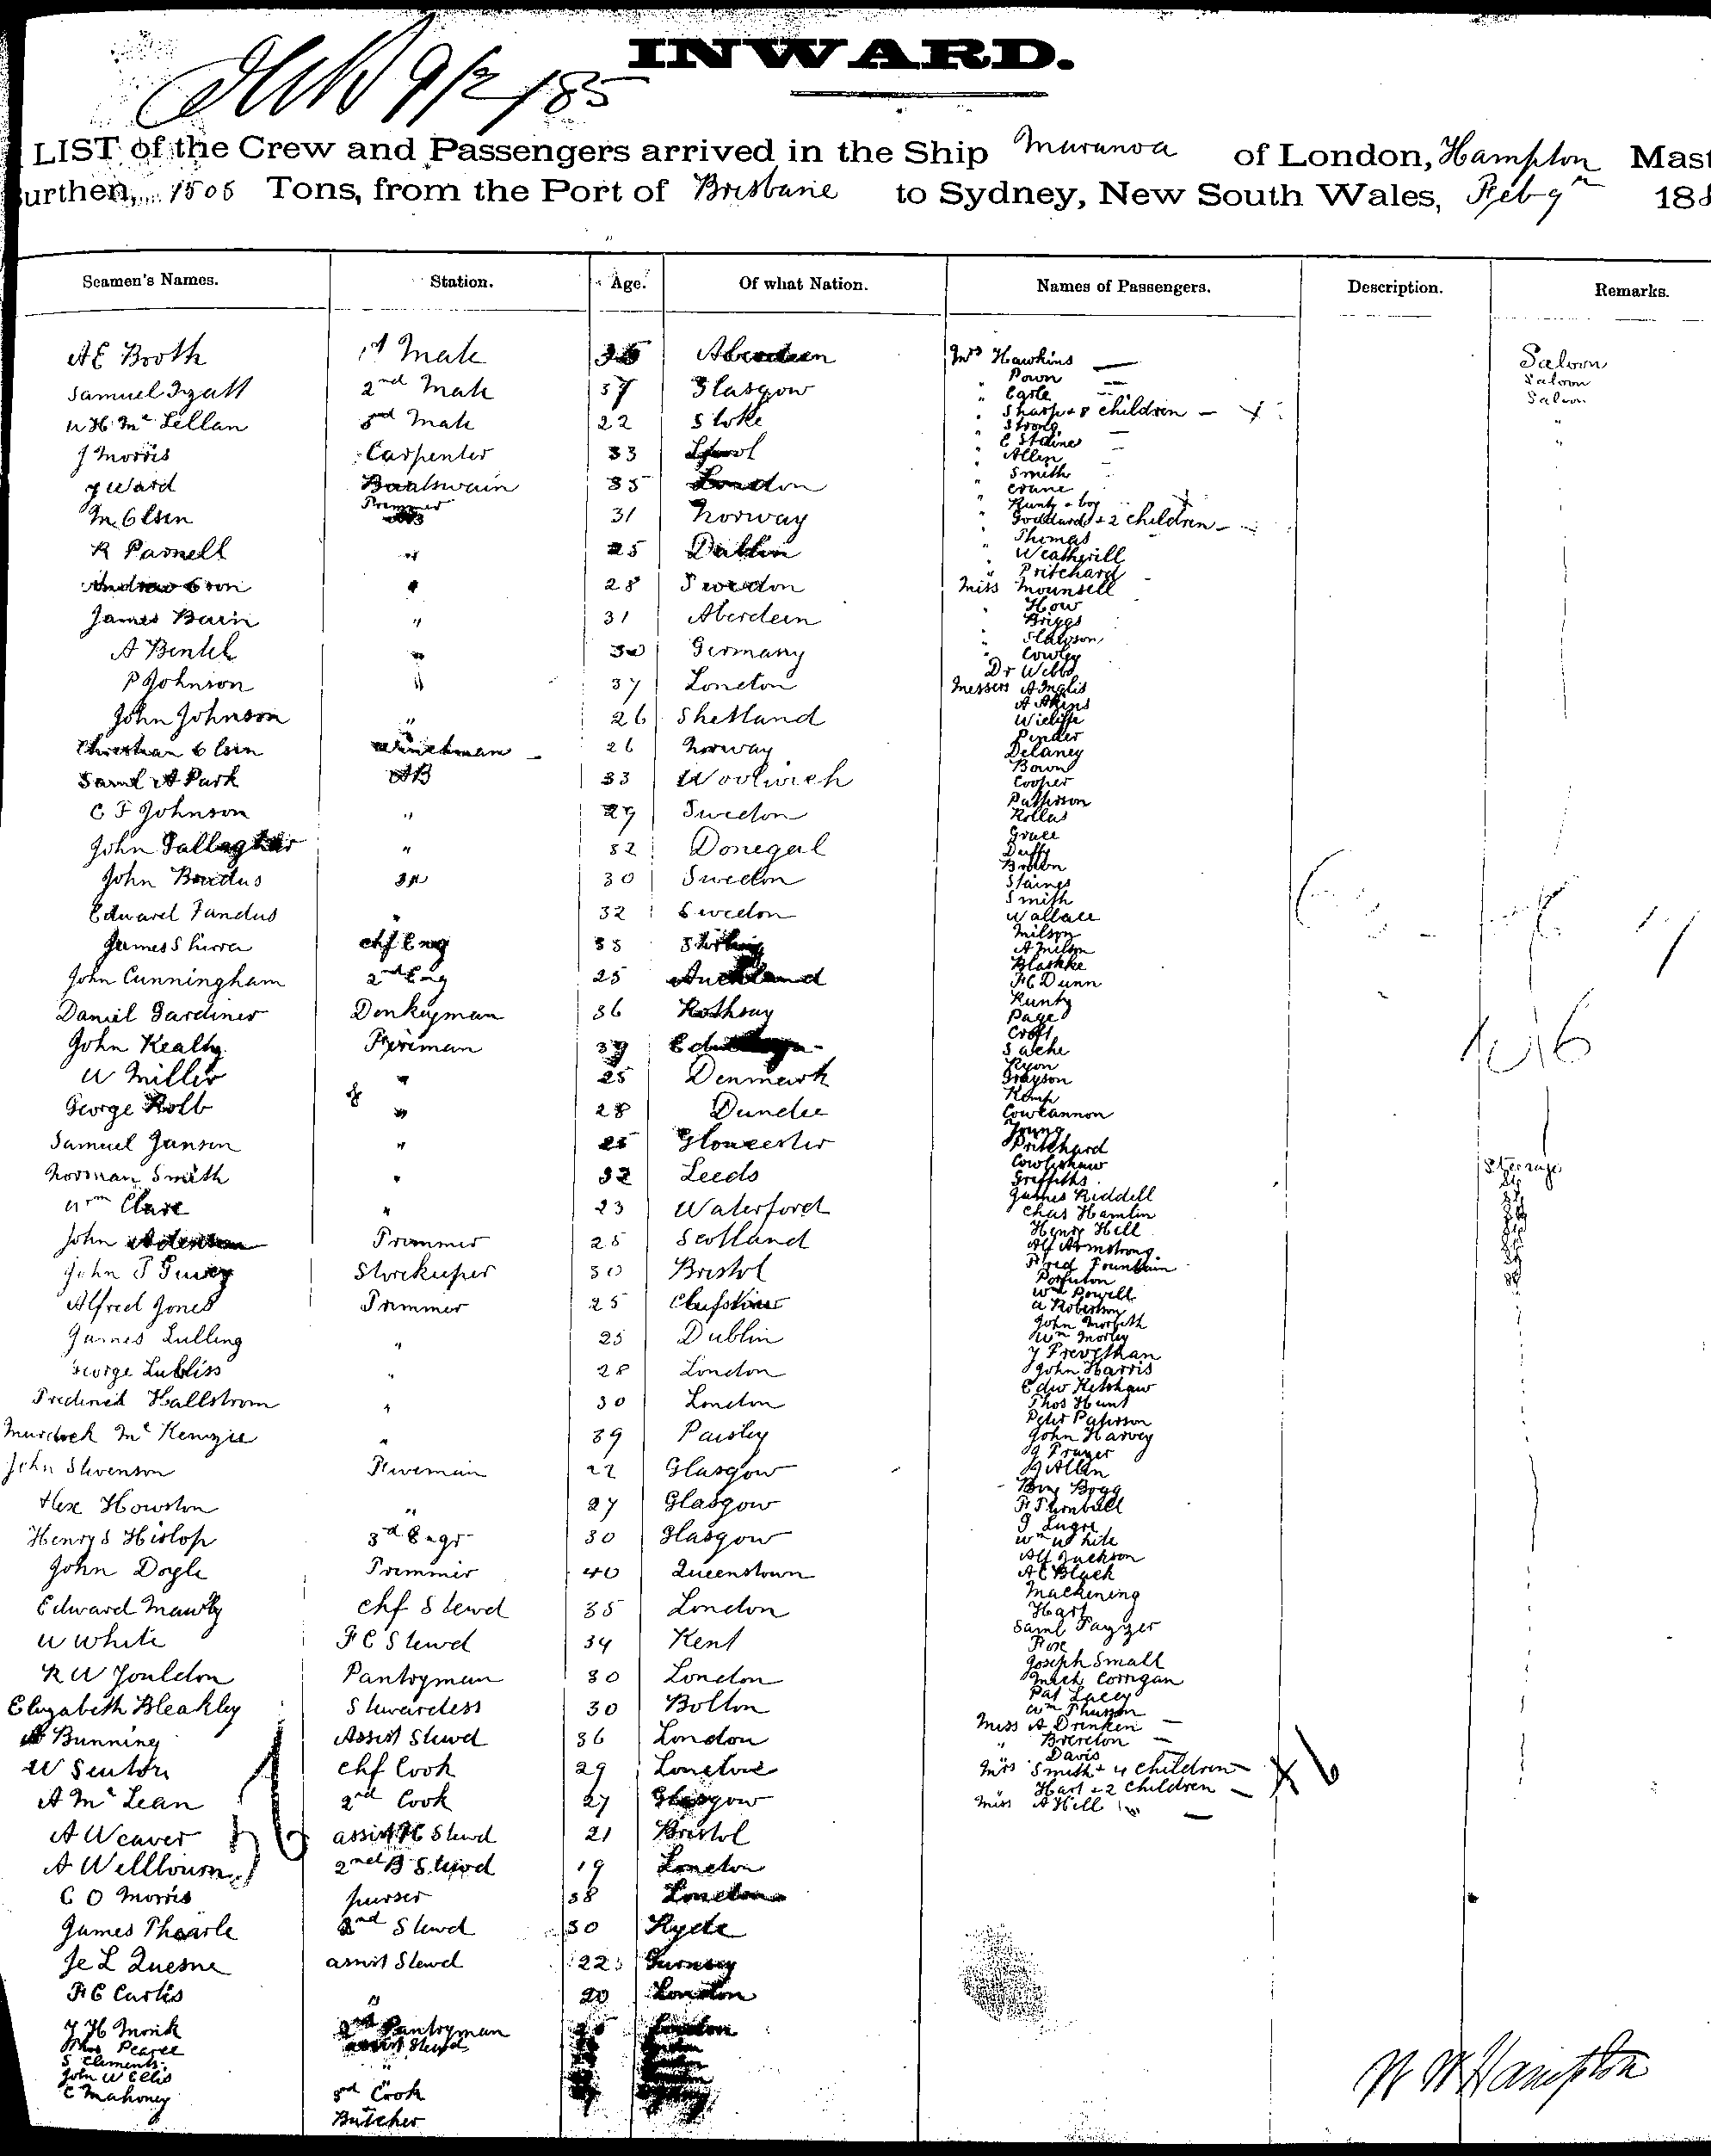 INWARD.
9/2/85
LIST of the Crew and Passengers arrived in the Ship Maranoa of London, Hampton Mast
urthen, 1505 Tons, from the Port of Brisbane to Sydney, New South Wales, Feby 9th 188
Seamen's Names. Station. Age. Of what Nation. Names of Passengers. Description. Remarks.
A E Booth 1st Mate 36 Aberdeen
Samuel 2nd Mate 37 Glasgow
W H Mc Lellan 3rd Mate 22 Stoke
J Morris Carpenter 33 Lpool
J Ward Boatswain 35 London
M Olsen Trimmer 31 Norway
R Parnell " 25 Dublin
Andrew " 28 Swedon
James Bain " 31 Aberdeen
A Bentel " 30 Germany
P Johnson " 37 London
John Johnson " 26 Shetland
Christian Olsen Winchman 26 Norway
Saml A Park AB 33 Woolwich
C F Johnson " 29 Swedon
John Gallagher " 32 Donegal
John 30 Swedon
Edward Fandus " 32 Swedon
James Shirra chf Eng 35 Stirling
John Cunningham 2nd Eng 25 Auckland
Daniel Gardiner Donkeyman 36 Rothsay
John Kealty Fireman 39
W Miller " 25 Denmark
George Rolb " 28 Dundee
Samuel Jansen " 25 Gloucester
Norman Smith " 32 Leeds
Wm Clare " 23 Waterford
John Trimmer 25 Scotland
John Storekeeper 30 Bristol
Alfred Jones Trimmer 25
James Lulling " 25 Dublin
George Lubliss " 28 London
Frederick Hallstrom " 30 London
Murdock Mc Kenzie " 39 Paisley
John Stevenson Fireman 22 Glasgow
Alex Howston " 27 Glasgow
Henry S Hislop 3rd Engr 30 Glasgow
John Dogle Trimmer 40 Queenstown
Edward Mawby chf Stewd 35 London
W White F C Stewd 34 Kent
R W Youldon Pantryman 30 London
Elizabeth Bleakley Stewardess 30 Bolton
Bunning Assist Stewd 36 London
W Senton chf Cook 29 London
A Mc Lean 2nd Cook 27 Glasgow
A Weaver assist FC Stewd 21 Bristol
A Wellbourn 2nd B Stewd 19 London
C O Morris purser 38 London
James Thearle 2nd Stewd 30 Ryde
Je L Quesne assist Stewd 22 Guernsey
F C Curtis " 20 London
J H Monk 2nd Pantryman London
Thos Pearce assist Stewd
S Clements "
John W Ellis "
C Mahoney 3rd Cook
Butcher
Mrs Hawkins Saloon
" Down Saloon
" Earle Saloon
" Sharp + 8 children "
" Strong
" E Staine "
" Allen
" Smith
" Crane
" Kuntz + boy
" Goddard + 2 children
" Thomas
" Weatherill
" Pritchard
Miss Mounsell
" How
" Briggs
" Slawson
" Cowley
Dr Webb
Messers A Inglis
A Akins
Wicliffe
Pinder
Delaney
Bown
Cooper
Patterson
Rollas
Grace
Duffy
Brotton
Staines
Smith
Wallace
Milson
A Milson
Blashke
F C Dunn
Kuntz
Page
Croft
Sache
Ryon
Grayson
Kemp
Cowlannon
Young
Pritchard
Cowlishaw Steerage
Griffiths
James Riddell
Chas Hamlin
Henry Hill
Alf Armstrong
Fred Fountain
Wm Powell
A Robertson
John Morfeth
Wm Morley
J Trevethan
John Harris
Edw Ketshaw
Thos Hunt
Peter Paterson
John Harvey
G Frazer
J Allen
Benj Bogg
F Turnbull
J Lugre
Wm White
Alf Jackson
A C Black
Mackening
Hart
Saml Fayzer
Rose
Joseph Small
Mich Corrigan
Pat Lacey
Wm Thurson
Miss A Drenken
" Brereton
" Davis
Mrs Smith + 4 children
Hart + 2 children
Miss A Hill
W W Hampton